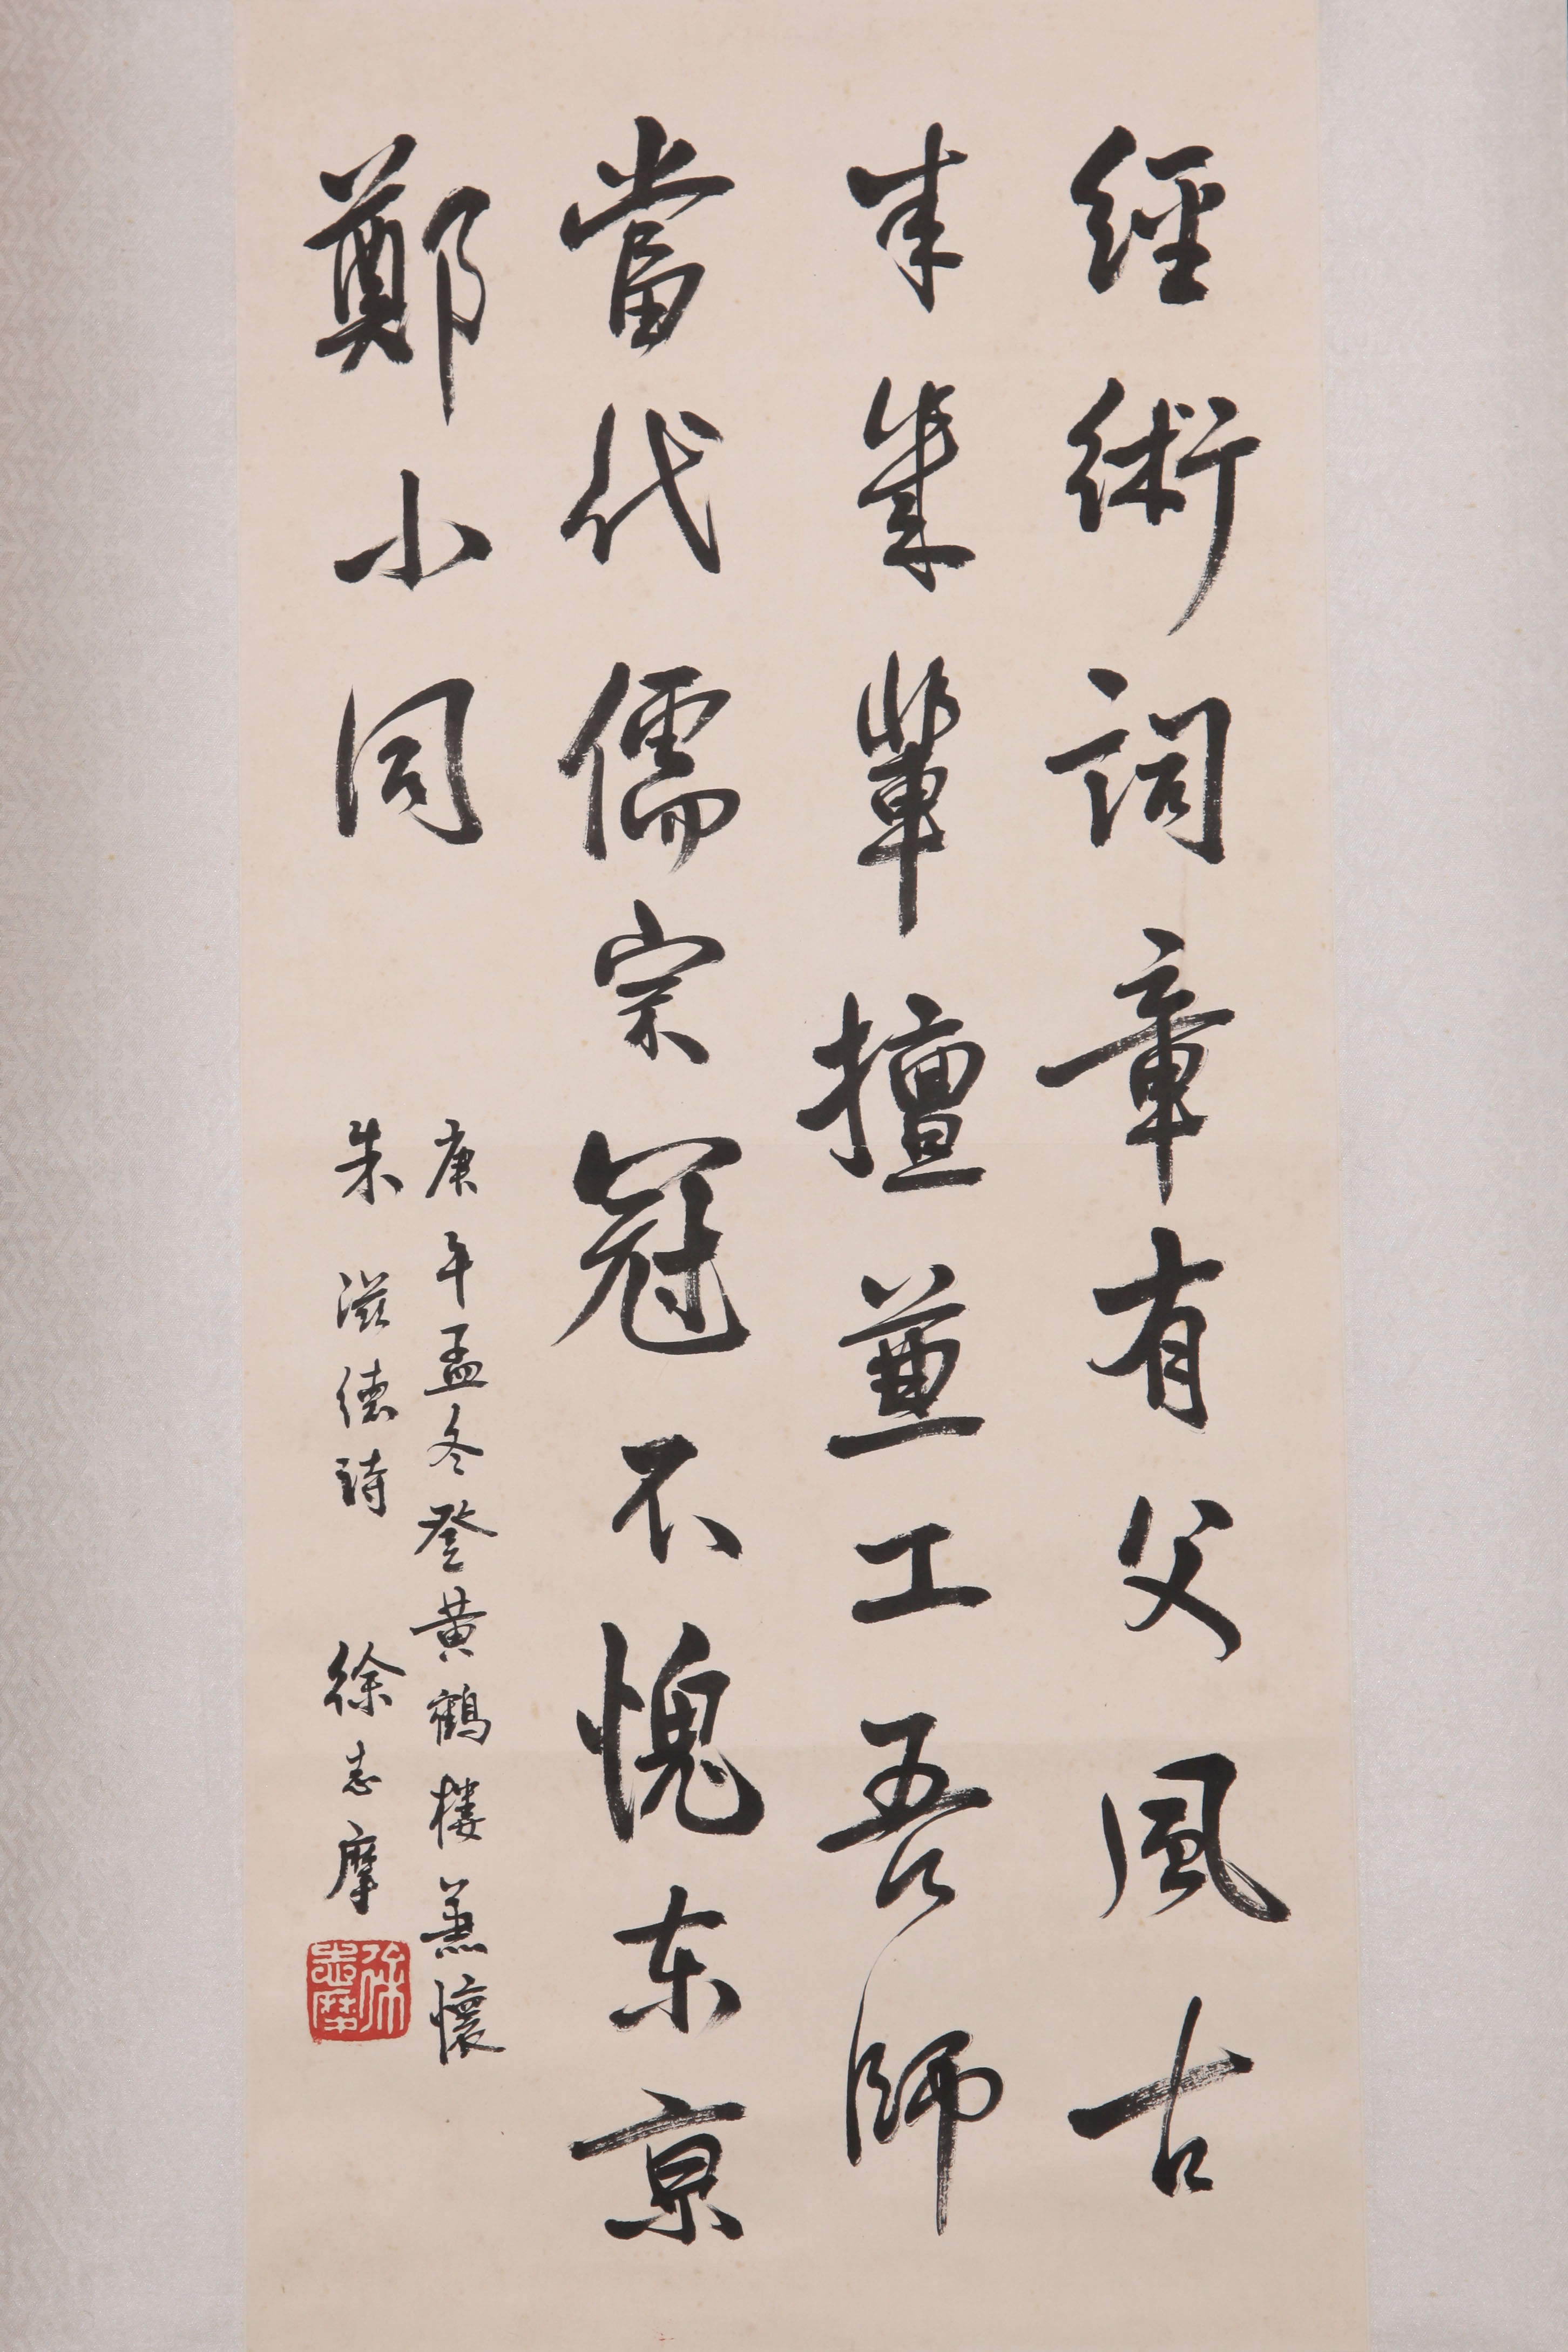 經術詞章有父風古
来幾輩擅兼工吾師
當代儒宗冠不愧东京
鄭小同
庚午孟冬登黄鶴樓兼懷
朱滋德詩 徐志摩
徐志摩